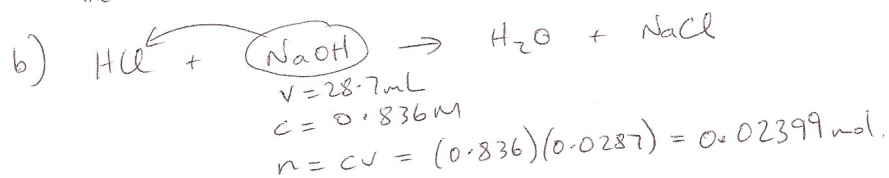 b) HCl + NaOH → H₂O + NaCl
V = 28.7mL
C = 0.836M
n = cv = (0.836)(0.0287) = 0.02399 mol.